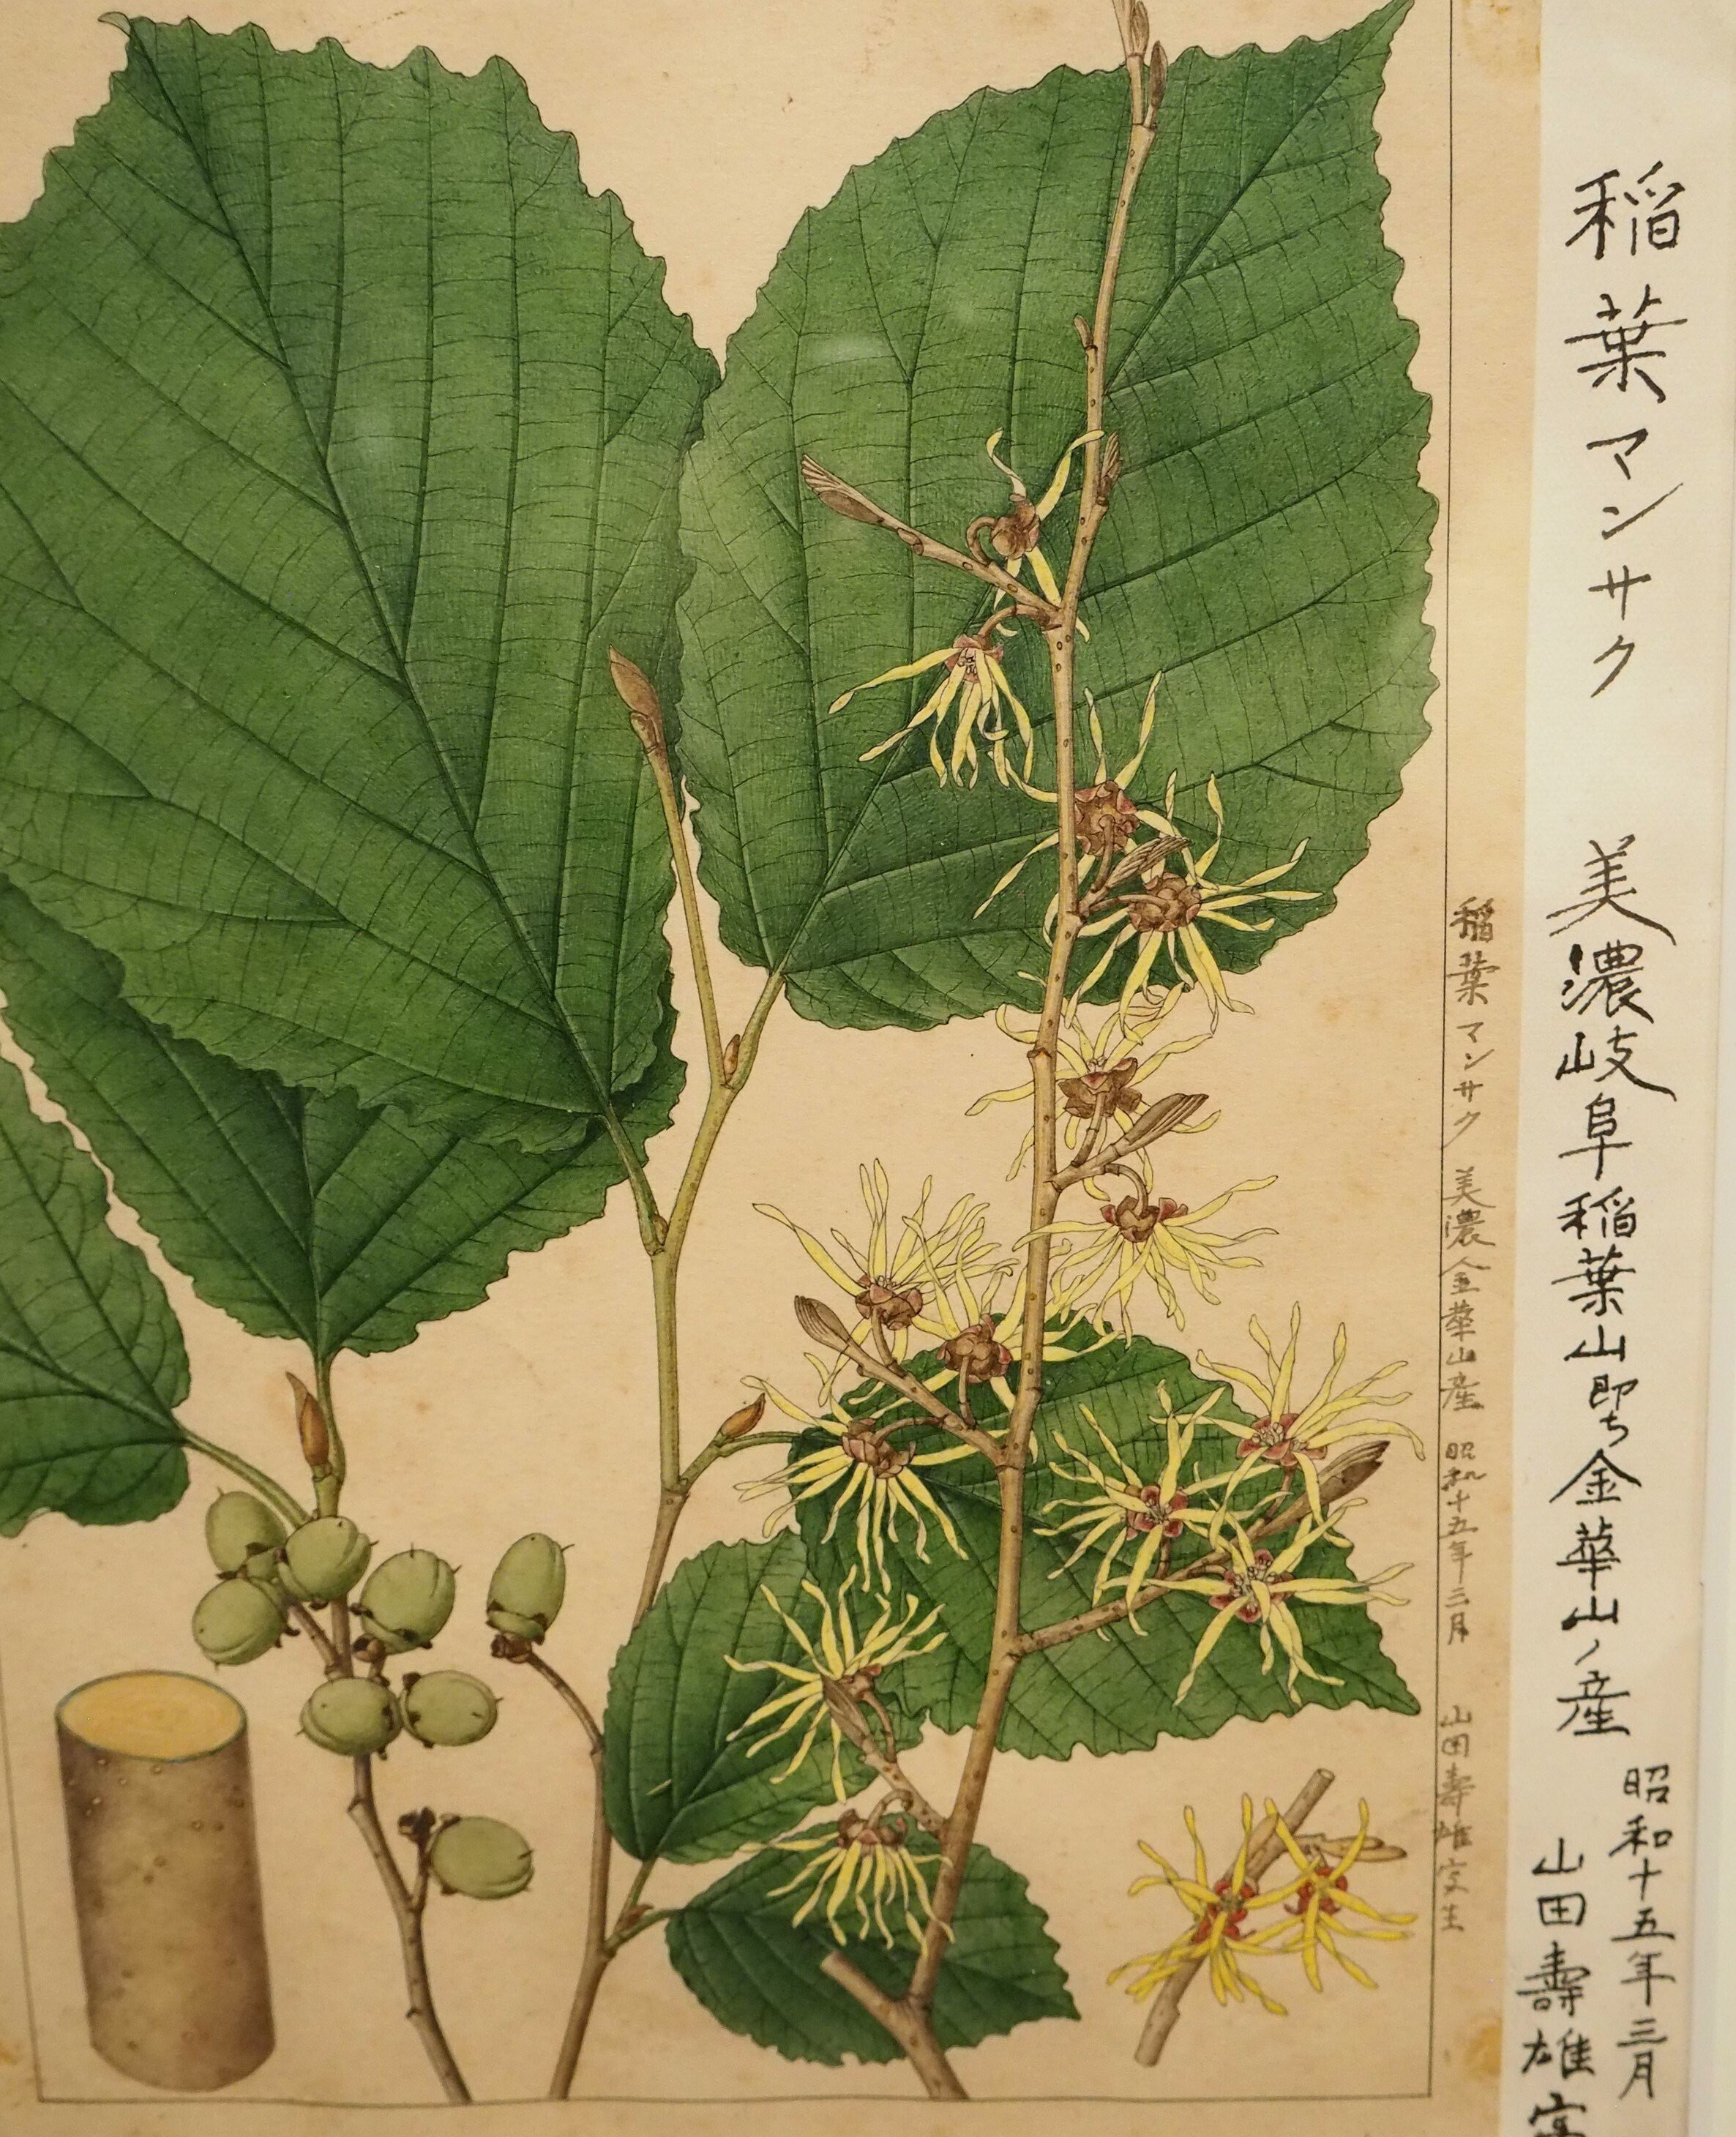 稲葉マンサク 美濃岐阜稲葉山即チ金華山ノ産
昭和十五年三月
山田壽雄写
稲葉マンサク 美濃金華山産 昭和十五年三月 山田壽雄写生